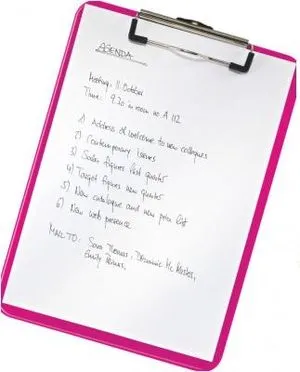 AGENDA
Meeting, 11 October
Time: 9.30 in room no A 112
1) Address of welcome to new collegues
2) Contemporary Issues
3) Sales figures last quarter
4) Target figures new quarter
5) New catalogue and new price list
6) New web presence
MAIL TO: Sara Thomas, Dominic Mc Masters,
Emily